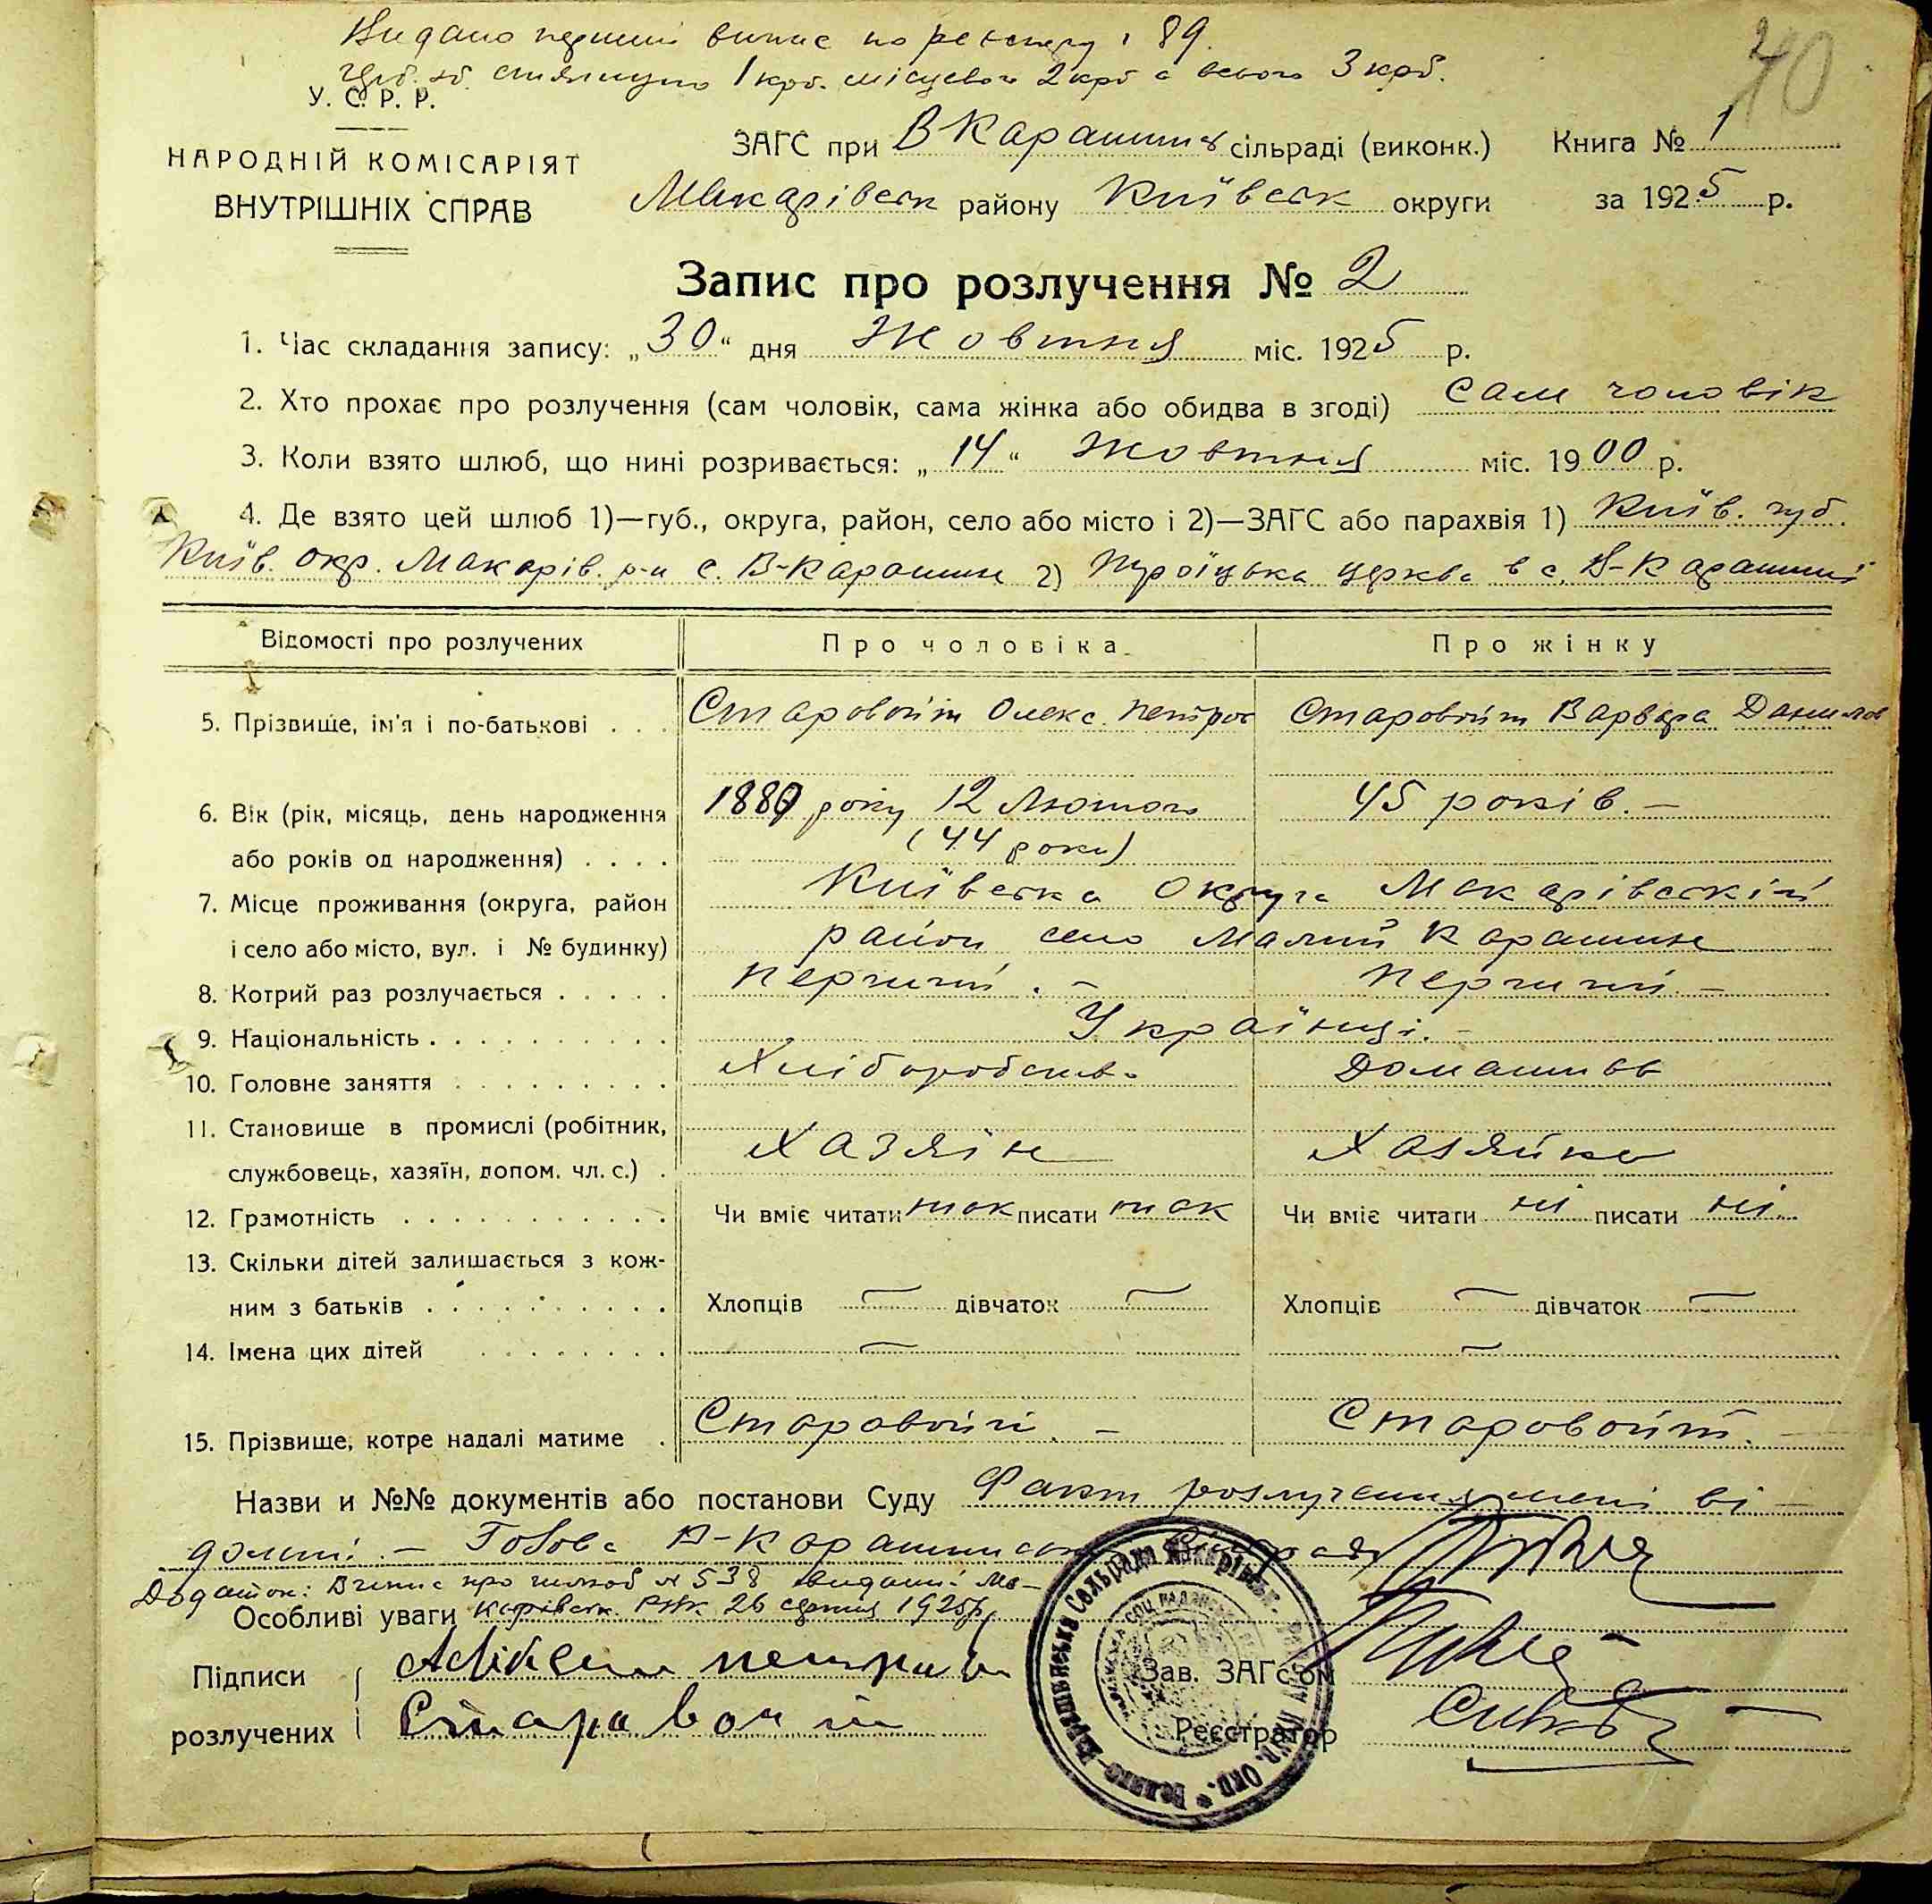 Видано перший випис по реєстру № 89.
стягнуто 1 крб. місцевого 2 крб а всього 3 крб.
40
У. С. Р. Р.
НАРОДНІЙ КОМІСАРІЯТ
ВНУТРІШНІХ СПРАВ
ЗАГС при В Карашинs сільраді (виконк.) Книга № 1
Макарівськ району Київськ округи за 1925 р.
Запис про розлучення № 2
1. Час складання запису: „30“ дня Жовтня міс. 1925 р.
2. Хто прохає про розлучення (сам чоловік, сама жінка або обидва в згоді) Сам чоловік
3. Коли взято шлюб, що нині розривається: „14“ Жовтня міс. 1900 р.
4. Де взято цей шлюб 1)—губ., округа, район, село або місто і 2)—ЗАГС або парахвія 1) Київ. губ.
Київ. окр. Макарів. р-н с. В-Карашин 2) Троїцька церква в с. В-Карашині
Відомості про розлучених Про чоловіка Про жінку
5. Прізвище, ім'я і по-батькові . . . Старовойт Олекс. Петров Старовойт Варвара Данилов
6. Вік (рік, місяць, день народження 1880 року 12 Лютого 45 років. —
або років од народження) . . . . (44 роки)
7. Місце проживання (округа, район Київська Округа Макарівський
і село або місто, вул. і № будинку) район село Малий Карашин
8. Котрий раз розлучається . . . . . Перший. — Перший. —
9. Національність . . . . . . . . . . Українці. —
10. Головне заняття . . . . . . . . . Хліборобство Домашнє
11. Становище в промислі (робітник,
службовець, хазяїн, допом. чл. с.) . Хазяїн Хазяйка
12. Грамотність . . . . . . . . . . . Чи вміє читати так писати так Чи вміє читати ні писати ні
13. Скільки дітей залишається з кож-
ним з батьків . . . . . . . . . . Хлопців — дівчаток — Хлопців — дівчаток —
14. Імена цих дітей . . . . . . . . — —
15. Прізвище, котре надалі матиме . Старовойт. — Старовойт. —
Назви и №№ документів або постанови Суду Факт розлучення мені ві-
домий. — Голова В-Карашинської Сільради
Додаток: Випис про шлюб № 538 виданий Ма-
Особливі уваги карівськ. РВК 26 серпня 1925 р.
Підписи
розлучених Старавойт
Зав. ЗАГС'ом
Реєстратор